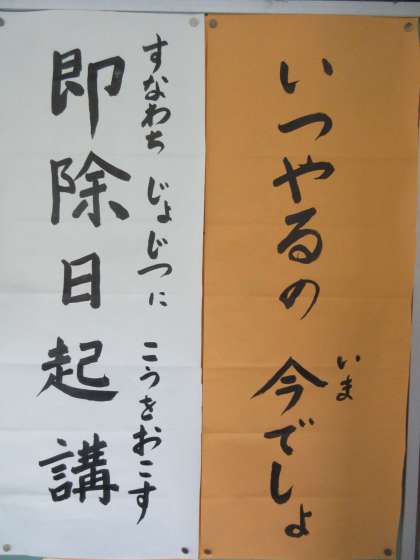 いつやるの 今でしょ
いま
すなわち じょじつに こうをおこす
即除日起講